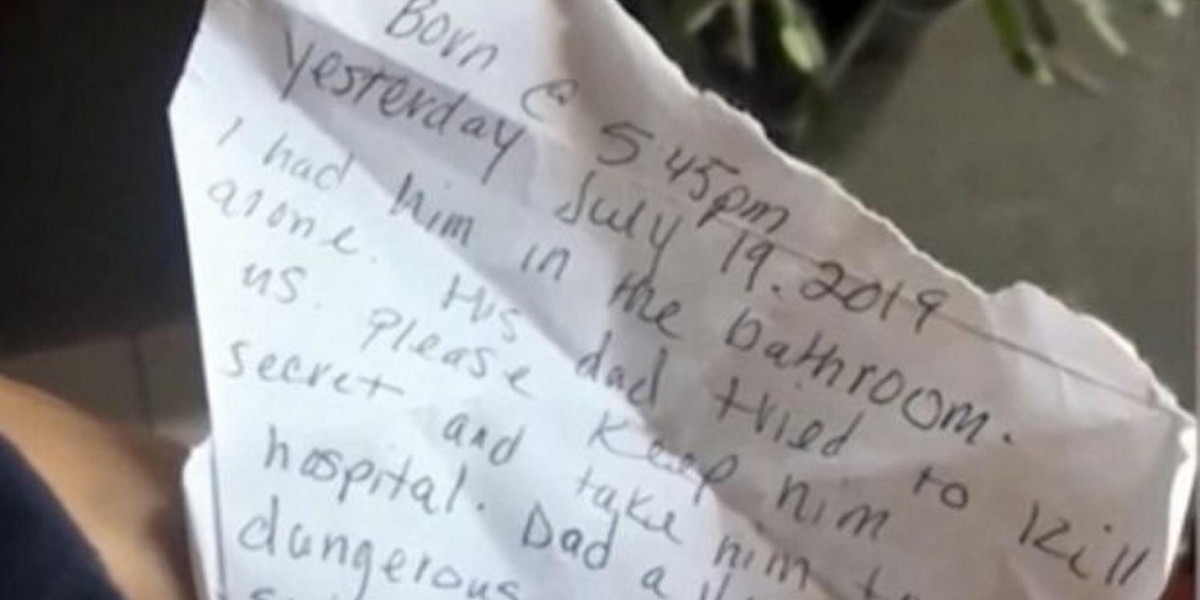 Born @ 5:45pm
Yesterday July 19. 2019
I had him in the bathroom.
alone. His dad tried to Kill
us. please keep him
secret and take him
hospital. Dad
dangerous